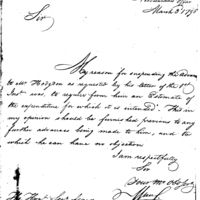 March 3d 1795
Sir
My reason for suspending the Advance
to Mr Hodgdon as requested by his letter of the 1st
Inst was, to require from him an Estimate of
the expenditure for which it is intended. This in
my opinion should be furnished previous to any
further advances being made to him, and to
which he can have no objection
I am respectfully
Sir
Your Mo Ob Ser